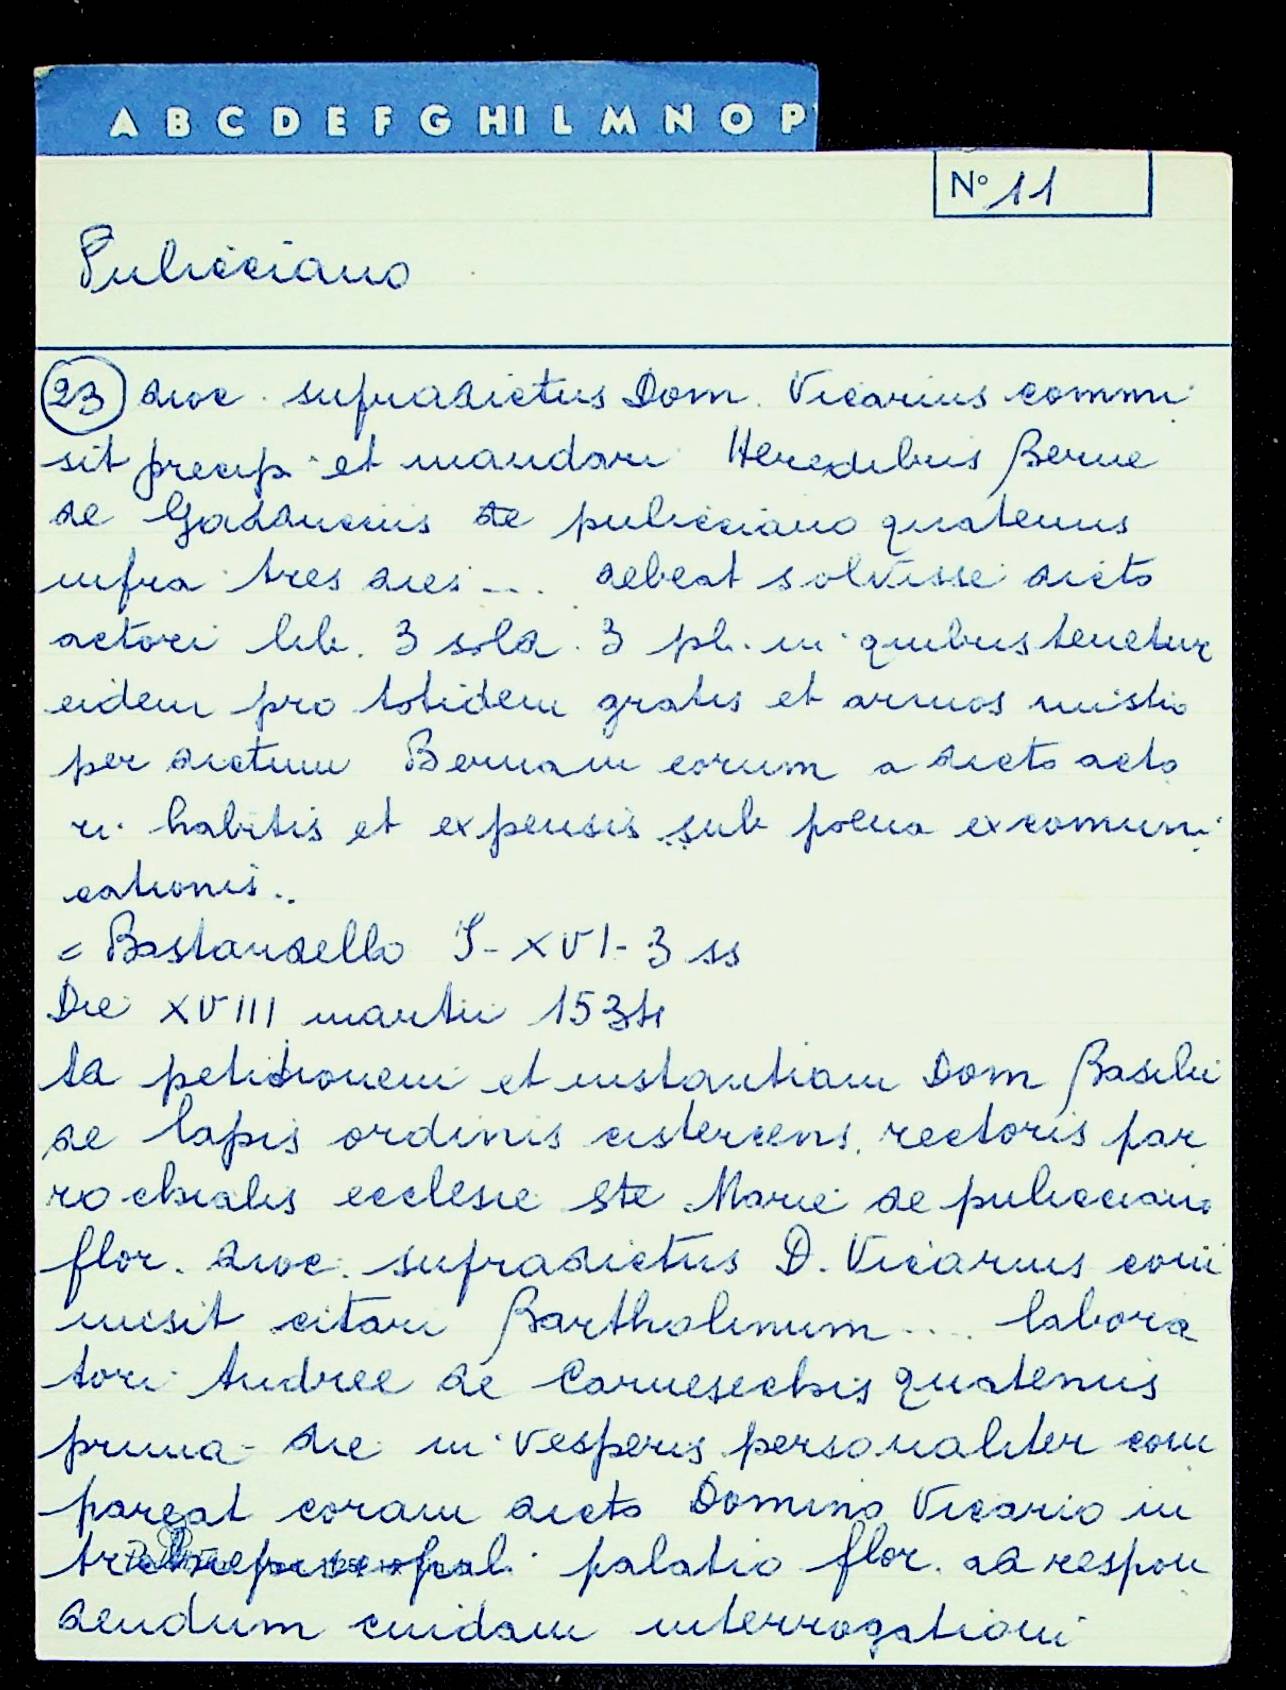 A B C D E F G HI L M N O P
N° 11
Pulicciano
23 dioc. supradictus Dom. Vicarius commi
sit precip. et mandari Heredibus Berne
de Gadduccis de pulicciano quatenus
infra tres dies ... debeat solvisse dicto
actori lib. 3 sold. 3 pl. in quibus tenetur
eidem pro totidem gratis et armos mistio
per dictum Bernam eorum a dicto acto
ri habitis et expensis sub poena excomuni
cationis..
= Bastardello I-XVI-3 ss
Die XVIII martii 1534
Ad petitionem et instantiam Dom Basilii
de lapis ordinis cistercens. rectoris par
rochialis ecclesie Ste Marie de pulicciano
flor. dioc. supradictus D. Vicarius com
misit citari Bartholinum .... labora
tori Andree de Carnesechis quatenus
prima die in vesperis personaliter com
pareat coram dicto Domino Vicario in
archiepiscopal. palatio flor. ad respon
dendum cuidam interrogationi